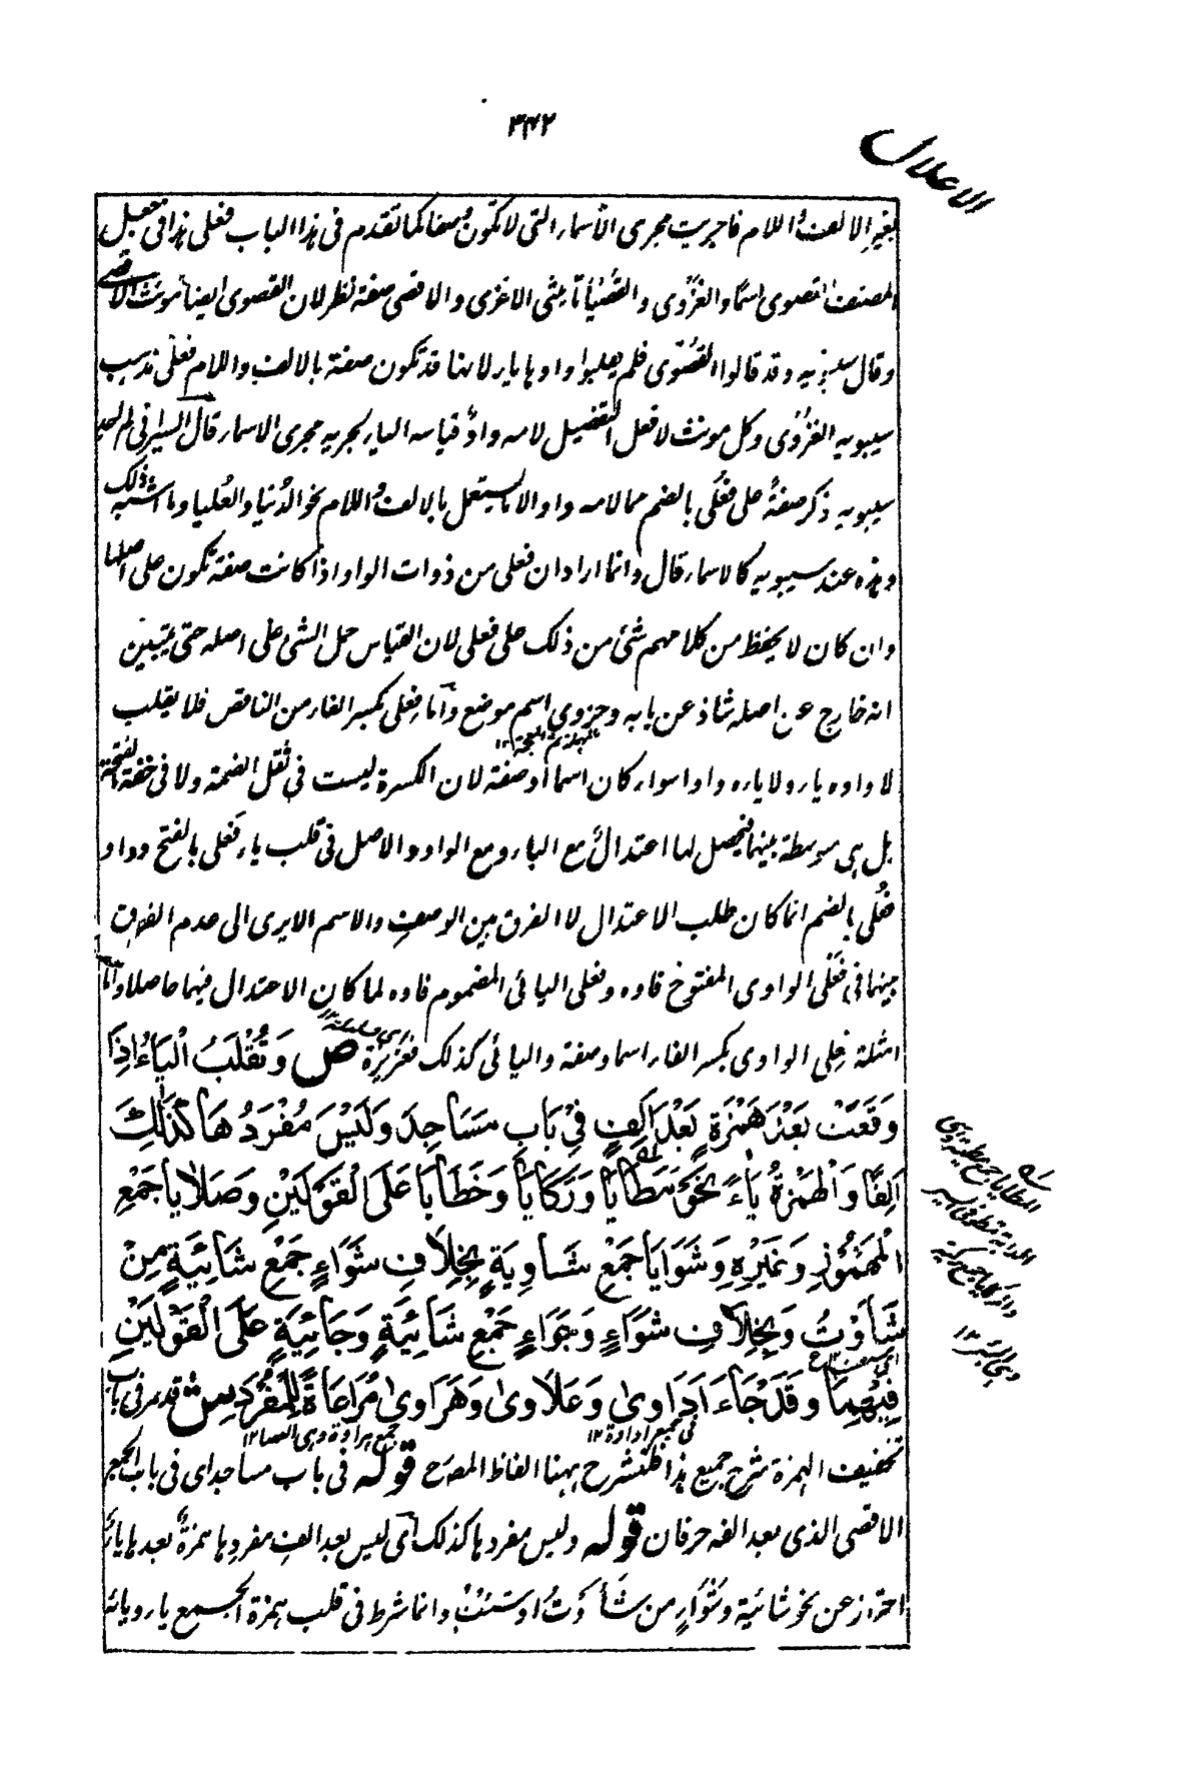 ۳۴۲
الاعلال
بغير الالف واللام فاجريت مجرى الأسماء التى لا تكون وصفا كما تقدم فى هذا الباب فعلى هذا فى جعل
المصنف القصوى اسمًا والغُزْوى والقُضْيا تأنيثى الاغزى والاقضى صفة نظر لان القصوى ايضا مؤنث الاقصى
وقال سيبويه وقد قالوا القُصْوى فلم يقلبوا واوها ياء لانها قد تكون صفة بالالف واللام فعلى مذهب
سيبويه الغُزْوى وكل مونث لافعل التفضيل لامه واو قياسه الياء لجريه مجرى الاسماء قال السيرافى لم اجد
سيبويه ذكر صفةً على فُعْلى بالضم مما لامه واو الا ما يستعمل بالالف واللام نحو الدُنيا والعُليا وما اشبه ذلك
وهذه عند سيبويه كالاسماء قال وانما اراد ان فعلى من ذوات الواو اذا كانت صفة تكون على اصلها
وان كان لا يحفظ من كلامهم شئ من ذلك على فعلى لان القياس حمل الشئ على اصله حتى يتبين
انه خارج عن اصله شاذ عن بابه وحزوى اسم موضع وأما فِعلى بكسر الفاء من الناقص فلا يقلب
لا واوه ياء ولا ياءه واوا سواء كان اسما أو صفة لان الكسرة ليست فى ثقل الضمة ولا فى خفة الفتحة
بل هى متوسطة بينهما فيحصل لها اعتدالٌ مع الياء ومع الواو والاصل فى قلب ياء فَعلى بالفتح وواو
فُعلى بالضم انما كان طلب الاعتدال لا الفرق بين الوصف والاسم الا يرى الى عدم الفرق
بينهما فى فَعلى الواوى المفتوح فاوه وفعلى اليائى المضموم فاوه لما كان الاعتدال فيهما حاصلا وأما
امثلة فِعلى الواوى بكسر الفاء اسما وصفة واليائى كذلك فعزيزة ص وَتُقْلَبُ الْيَاءُ اِذَا
وَقَعَتْ بَعْدَ هَمْزَةٍ بَعْدَ اَلِفٍ فِيْ بَابِ مَسَاجِدَ وَلَيْسَ مُفْرَدُهَا كَذٰلِكَ
اَلِفًا وَالْهَمْزَةُ يَاءً نَحْوَ مَطَايَا وَرَكَايَا وَخَطَايَا عَلَى الْقَوْلَيْنِ وَصَلَايَا جَمْعِ
الْمَهْمُوْزِ وَغَيْرِهِ وَشَوَايَا جَمْعِ شَاوِيَةٍ بِخِلَافِ شَوَاءٍ جَمْعِ شَائِيَةٍ مِنْ
شَأَوْتُ وَبِخِلَافِ شَوَاءٍ وَجَوَاءٍ جَمْعِ شَائِيَةٍ وَجَائِيَةٍ عَلَى الْقَوْلَيْنِ
فِيْهِمَا وَقَدْ جَاءَ اَدَاوىٰ وَعَلَاوىٰ وَهَرَاوىٰ مُرَاعَاةً لِلْمُفْرَدِ ش قد مر فى باب
تخفيف الهمزة شرح جميع هذا فلنشرح ههنا الفاظ المص ح قوله فى باب مساجد اى فى باب الجمع
الاقصى الذى بعد الفه حرفان قوله وليس مفردها كذلك أى ليس بعد الف مفردها همزةٌ بعدها ياءٌ
احتراز عن نحو شائية وشواءٍ من شَأَوْتُ او شئتُ وانما شرط فى قلب همزة الجمع ياء وياءه